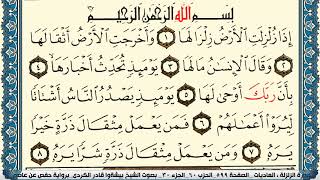 بِسْمِ اللَّهِ الرَّحْمَٰنِ الرَّحِيمِ
إِذَا زُلْزِلَتِ الْأَرْضُ زِلْزَالَهَا ١ وَأَخْرَجَتِ الْأَرْضُ أَثْقَالَهَا
٢ وَقَالَ الْإِنسَانُ مَا لَهَا ٣ يَوْمَئِذٍ تُحَدِّثُ أَخْبَارَهَا ٤
بِأَنَّ رَبَّكَ أَوْحَىٰ لَهَا ٥ يَوْمَئِذٍ يَصْدُرُ النَّاسُ أَشْتَاتًا
لِّيُرَوْا أَعْمَالَهُمْ ٦ فَمَن يَعْمَلْ مِثْقَالَ ذَرَّةٍ خَيْرًا
يَرَهُ ٧ وَمَن يَعْمَلْ مِثْقَالَ ذَرَّةٍ شَرًّا يَرَهُ ٨
الزلزلة، العاديات . الصفحة ٥٩٩ . الحزب ٦٠ . الجزء ٣٠ . بصوت الشيخ بيشةوا قادر الكردي . برواية حفص عن عاصم